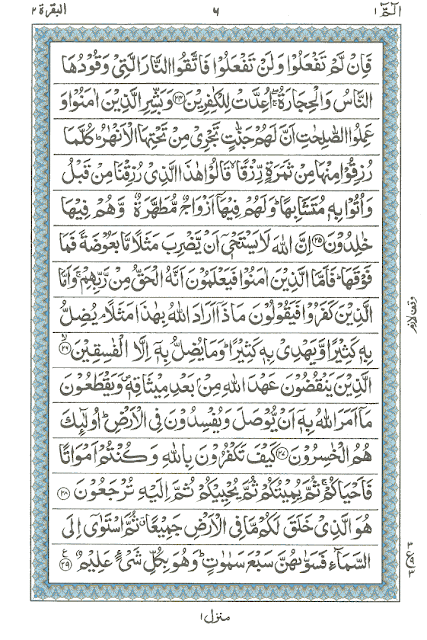 الٓمّٓ ۱ ۶ البقرة ۲
فَاِنْ لَّمْ تَفْعَلُوْا وَلَنْ تَفْعَلُوْا فَاتَّقُوا النَّارَ الَّتِيْ وَقُوْدُهَا
النَّاسُ وَالْحِجَارَةُ ۖۚ اُعِدَّتْ لِلْكٰفِرِيْنَ ﴿۲۴﴾ وَبَشِّرِ الَّذِيْنَ اٰمَنُوْا وَ
عَمِلُوا الصّٰلِحٰتِ اَنَّ لَهُمْ جَنّٰتٍ تَجْرِيْ مِنْ تَحْتِهَا الْاَنْهٰرُ ؕ كُلَّمَا
رُزِقُوْا مِنْهَا مِنْ ثَمَرَةٍ رِّزْقًا ۙ قَالُوْا هٰذَا الَّذِيْ رُزِقْنَا مِنْ قَبْلُ
وَاُتُوْا بِهٖ مُتَشَابِهًا ؕ وَلَهُمْ فِيْهَاۤ اَزْوَاجٌ مُّطَهَّرَةٌ وَّهُمْ فِيْهَا
خٰلِدُوْنَ ﴿۲۵﴾ اِنَّ اللّٰهَ لَا يَسْتَحْيٖۤ اَنْ يَّضْرِبَ مَثَلًا مَّا بَعُوْضَةً فَمَا
فَوْقَهَا ؕ فَاَمَّا الَّذِيْنَ اٰمَنُوْا فَيَعْلَمُوْنَ اَنَّهُ الْحَقُّ مِنْ رَّبِّهِمْ ۚ وَاَمَّا
الَّذِيْنَ كَفَرُوْا فَيَقُوْلُوْنَ مَاذَاۤ اَرَادَ اللّٰهُ بِهٰذَا مَثَلًا ۘ يُضِلُّ
بِهٖ كَثِيْرًا وَّيَهْدِيْ بِهٖ كَثِيْرًا ؕ وَمَا يُضِلُّ بِهٖۤ اِلَّا الْفٰسِقِيْنَ ﴿۲۶﴾
الَّذِيْنَ يَنْقُضُوْنَ عَهْدَ اللّٰهِ مِنْۢ بَعْدِ مِيْثَاقِهٖ ۪ وَيَقْطَعُوْنَ
مَاۤ اَمَرَ اللّٰهُ بِهٖۤ اَنْ يُّوْصَلَ وَيُفْسِدُوْنَ فِي الْاَرْضِ ؕ اُولٰٓئِكَ
هُمُ الْخٰسِرُوْنَ ﴿۲۷﴾ كَيْفَ تَكْفُرُوْنَ بِاللّٰهِ وَكُنْتُمْ اَمْوَاتًا
فَاَحْيَاكُمْ ۚ ثُمَّ يُمِيْتُكُمْ ثُمَّ يُحْيِيْكُمْ ثُمَّ اِلَيْهِ تُرْجَعُوْنَ ﴿۲۸﴾
هُوَ الَّذِيْ خَلَقَ لَكُمْ مَّا فِي الْاَرْضِ جَمِيْعًا ۗ ثُمَّ اسْتَوٰۤى اِلَى
السَّمَآءِ فَسَوّٰىهُنَّ سَبْعَ سَمٰوٰتٍ ؕ وَهُوَ بِكُلِّ شَيْءٍ عَلِيْمٌ ﴿۲۹﴾
وقف لازم
۳
ع ۹
۳
منزل ۱